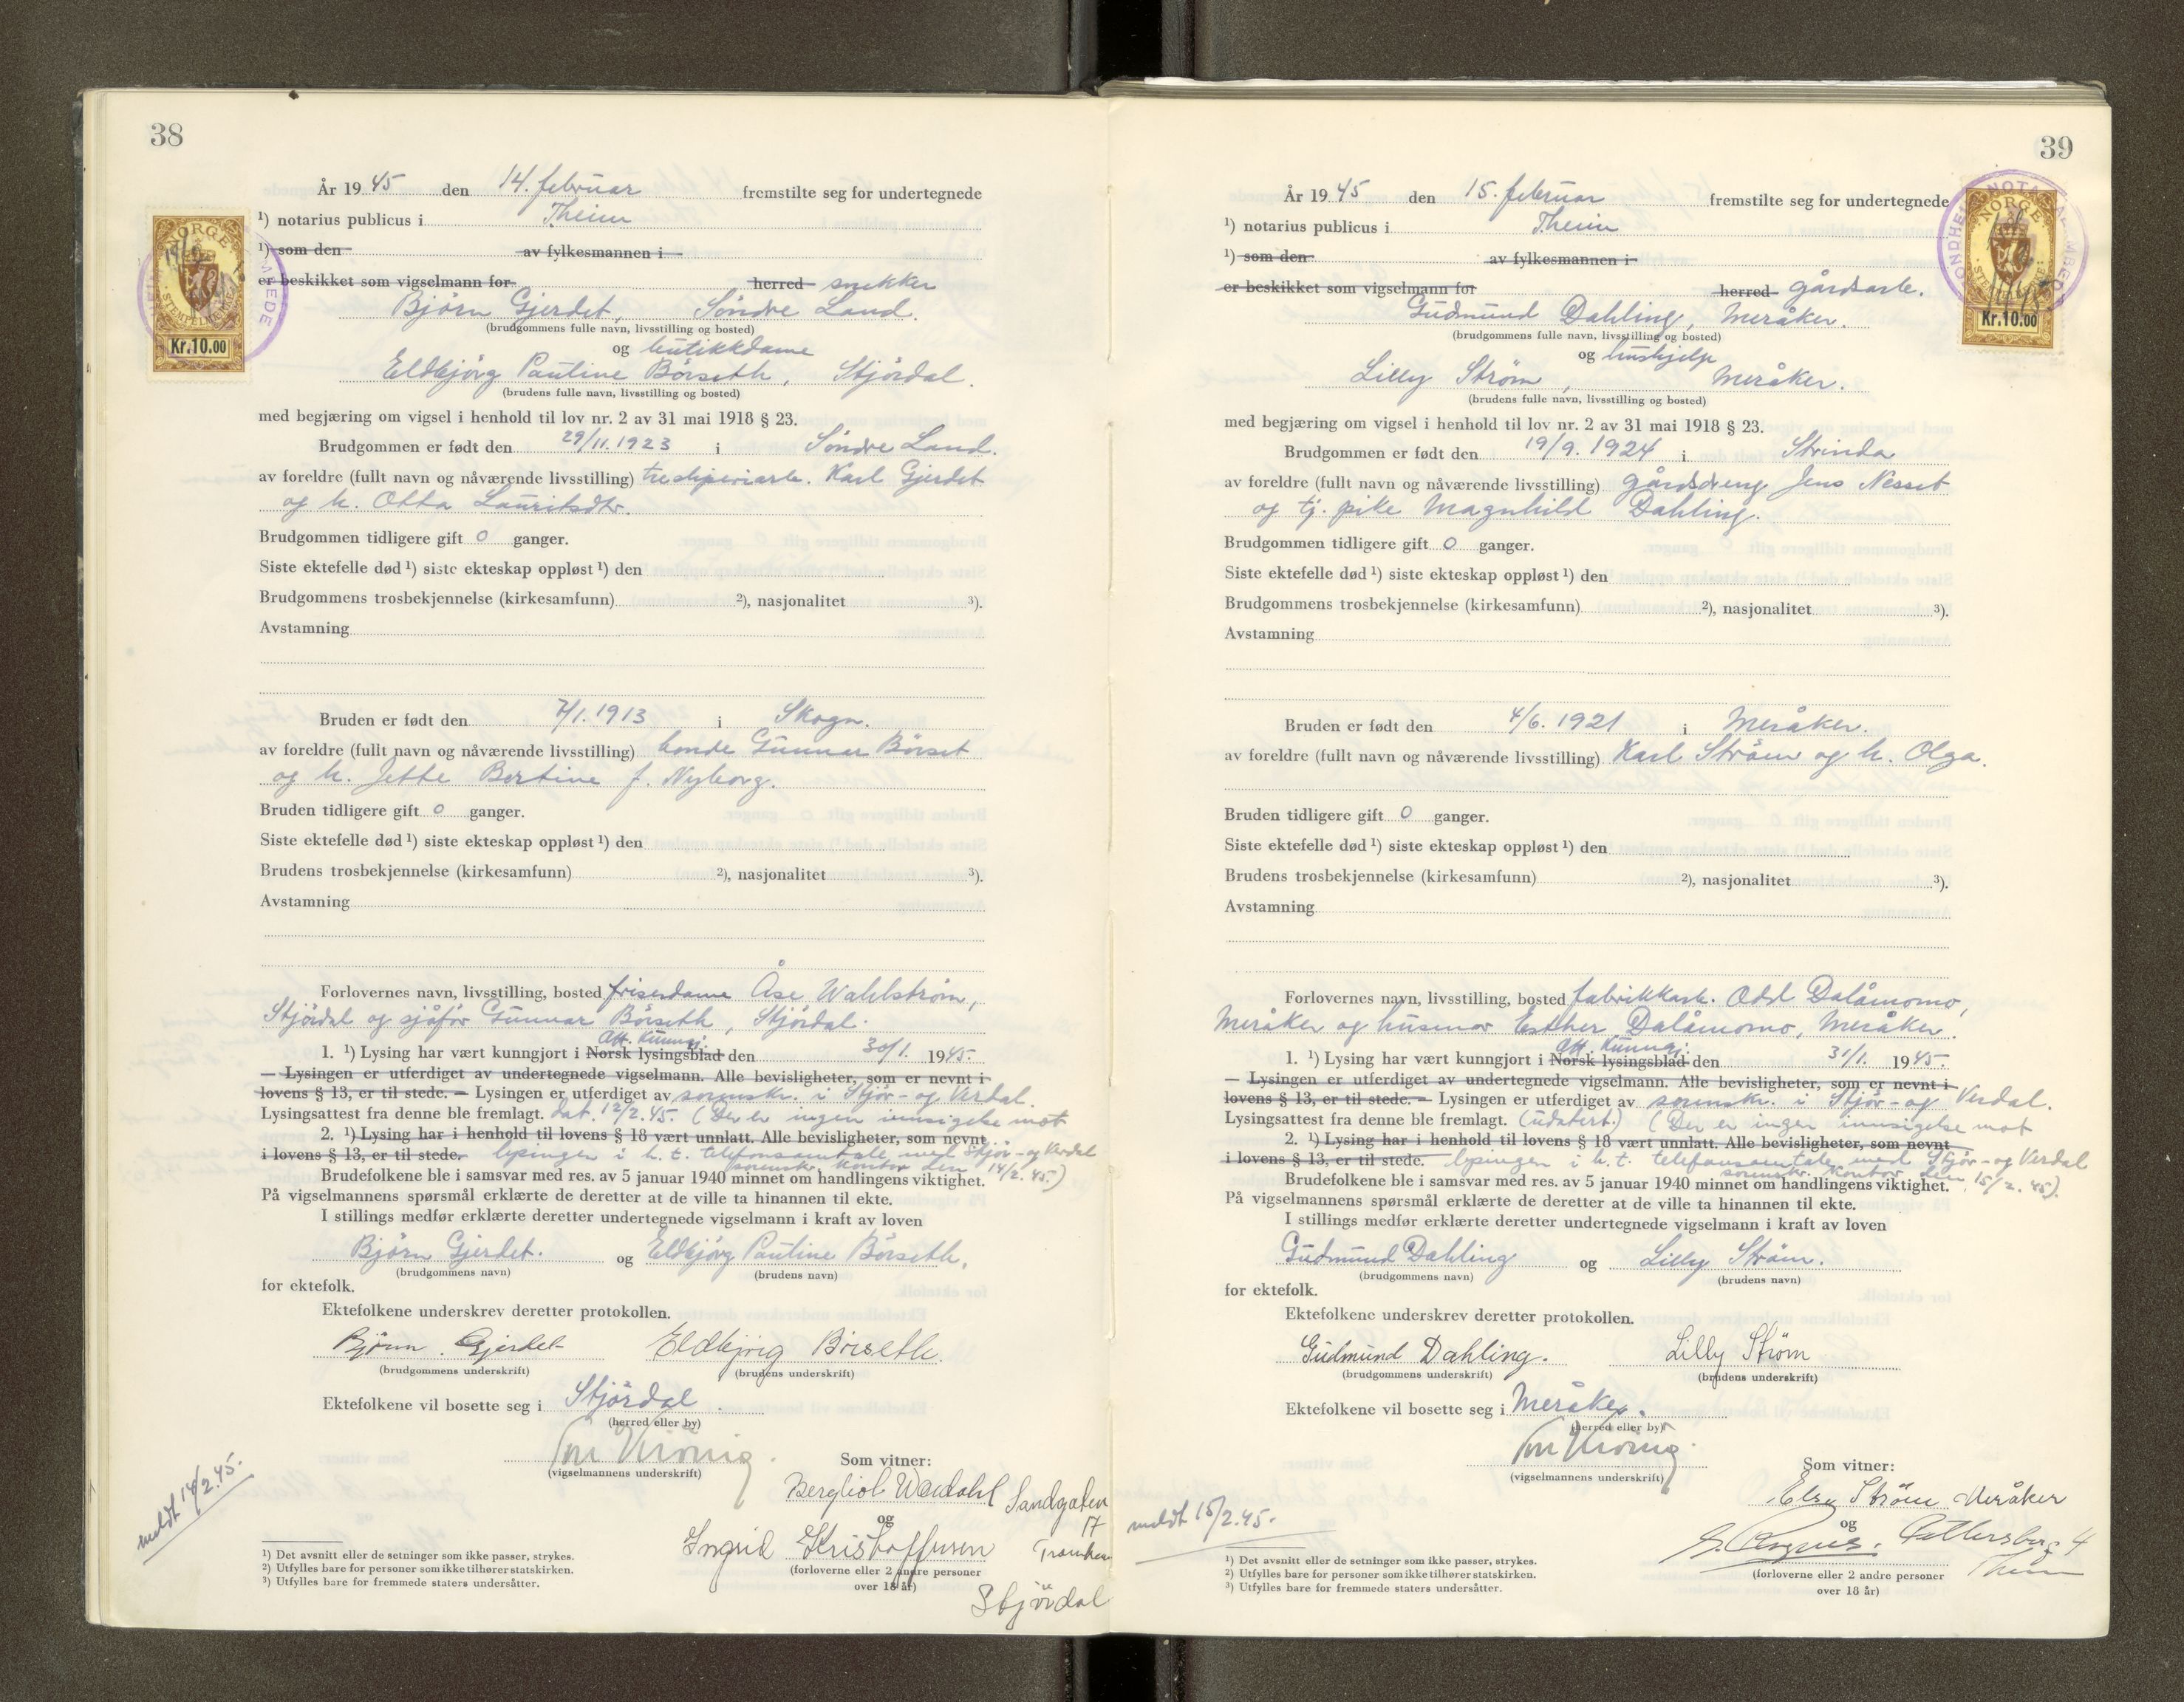 38
År 19 45 den 14. februar fremstilte seg for undertegnede
¹) notarius publicus i Theim
¹) som den av fylkesmannen i
er beskikket som vigselmann for herred snekker
Björn Gjerdet, Söndre Land.
(brudgommens fulle navn, livsstilling og bosted)
og butikkdame
Eldbjörg Pauline Börseth, Stjördal.
(brudens fulle navn, livsstilling og bosted)
med begjæring om vigsel i henhold til lov nr. 2 av 31 mai 1918 § 23.
Brudgommen er født den 29/11.1923 i Söndre Land.
av foreldre (fullt navn og nåværende livsstilling) tresliperiarb. Karl Gjerdet
og h. Otta Lauritsdtr.
Brudgommen tidligere gift 0 ganger.
Siste ektefelle død ¹) siste ekteskap oppløst ¹) den
Brudgommens trosbekjennelse (kirkesamfunn) ²), nasjonalitet ³).
Avstamning
Bruden er født den 7/1.1913 i Skogn.
av foreldre (fullt navn og nåværende livsstilling) bonde Gunnar Börset
og h. Jette Bertine f. Nyborg.
Bruden tidligere gift 0 ganger.
Siste ektefelle død ¹) siste ekteskap oppløst ¹) den
Brudens trosbekjennelse (kirkesamfunn) ²), nasjonalitet ³).
Avstamning
Forlovernes navn, livsstilling, bosted frisørdame Åse Wahlström,
Stjördal og sjåför Gunnar Börseth, Stjördal.
off. kunngj.
1. ¹) Lysing har vært kunngjort i Norsk lysingsblad den 30/1. 1945.
— Lysingen er utferdiget av undertegnede vigselmann. Alle bevisligheter, som er nevnt i
lovens § 13, er til stede. — Lysingen er utferdiget av sorenskr. i Stjör- og Verdal.
Lysingsattest fra denne ble fremlagt. dat. 12/2.45. (Der er ingen innsigelse mot
2. ¹) Lysing har i henhold til lovens § 18 vært unnlatt. Alle bevisligheter, som nevnt
i lovens § 13, er til stede. lysingen i h. t. telefonsamtale med Stjör- og Verdal
sorenskr. kontor den 14/2.45.)
Brudefolkene ble i samsvar med res. av 5 januar 1940 minnet om handlingens viktighet.
På vigselmannens spørsmål erklærte de deretter at de ville ta hinannen til ekte.
I stillings medfør erklærte deretter undertegnede vigselmann i kraft av loven
Björn Gjerdet. og Eldbjörg Pauline Börseth,
(brudgommens navn) (brudens navn)
for ektefolk.
Ektefolkene underskrev deretter protokollen.
Björn Gjerdet Eldbjörg Börseth.
(brudgommens underskrift) (brudens underskrift)
Ektefolkene vil bosette seg i Stjördal.
(herred eller by)
(vigselmannens underskrift)
Som vitner:
Bergliot Sandgaten
17
og
Ingrid Kristoffersen
(forloverne eller 2 andre personer
over 18 år)
Stjördal
meldt 14/2.45.
¹) Det avsnitt eller de setninger som ikke passer, strykes.
²) Utfylles bare for personer som ikke tilhører statskirken.
³) Utfylles bare for fremmede staters undersåtter.
NORGE
STEMPELMERKE
Kr.10.00
39
År 19 45 den 15. februar fremstilte seg for undertegnede
¹) notarius publicus i Theim
¹) som den av fylkesmannen i
er beskikket som vigselmann for herred gårdsarb.
Gudmund Dahling, Meråker.
(brudgommens fulle navn, livsstilling og bosted)
og hushjelp
Lilly Ström, Meråker.
(brudens fulle navn, livsstilling og bosted)
med begjæring om vigsel i henhold til lov nr. 2 av 31 mai 1918 § 23.
Brudgommen er født den 19/9.1924 i Strinda
av foreldre (fullt navn og nåværende livsstilling) gårdsdreng Jens Nesset
og tj. pike Magnhild Dahling.
Brudgommen tidligere gift 0 ganger.
Siste ektefelle død ¹) siste ekteskap oppløst ¹) den
Brudgommens trosbekjennelse (kirkesamfunn) ²), nasjonalitet ³).
Avstamning
Bruden er født den 4/6.1921 i Meråker.
av foreldre (fullt navn og nåværende livsstilling) Karl Ström og h. Olga.
Bruden tidligere gift 0 ganger.
Siste ektefelle død ¹) siste ekteskap oppløst ¹) den
Brudens trosbekjennelse (kirkesamfunn) ²), nasjonalitet ³).
Avstamning
Forlovernes navn, livsstilling, bosted fabrikkarb. Odd Dalåmomo,
Meråker og husmor Esther Dalåmomo, Meråker.
off. kunngj.
1. ¹) Lysing har vært kunngjort i Norsk lysingsblad den 31/1. 1945.
— Lysingen er utferdiget av undertegnede vigselmann. Alle bevisligheter, som er nevnt i
lovens § 13, er til stede. — Lysingen er utferdiget av sorenskr. i Stjör- og Verdal.
Lysingsattest fra denne ble fremlagt. (udatert.) (Der er ingen innsigelse mot
2. ¹) Lysing har i henhold til lovens § 18 vært unnlatt. Alle bevisligheter, som nevnt
i lovens § 13, er til stede. lysingen i h.t. telefonsamtale med Stjör- og Verdal
sorenskr. kontor den 15/2.45).
Brudefolkene ble i samsvar med res. av 5 januar 1940 minnet om handlingens viktighet.
På vigselmannens spørsmål erklærte de deretter at de ville ta hinannen til ekte.
I stillings medfør erklærte deretter undertegnede vigselmann i kraft av loven
Gudmund Dahling og Lilly Ström.
(brudgommens navn) (brudens navn)
for ektefolk.
Ektefolkene underskrev deretter protokollen.
Gudmund Dahling. Lilly Strøm
(brudgommens underskrift) (brudens underskrift)
Ektefolkene vil bosette seg i Meråker.
(herred eller by)
(vigselmannens underskrift)
Som vitner:
Elsy Strøm Meråker
og
4
(forloverne eller 2 andre personer
over 18 år)
meldt 15/2.45.
¹) Det avsnitt eller de setninger som ikke passer, strykes.
²) Utfylles bare for personer som ikke tilhører statskirken.
³) Utfylles bare for fremmede staters undersåtter.
NORGE
Kr.10.00